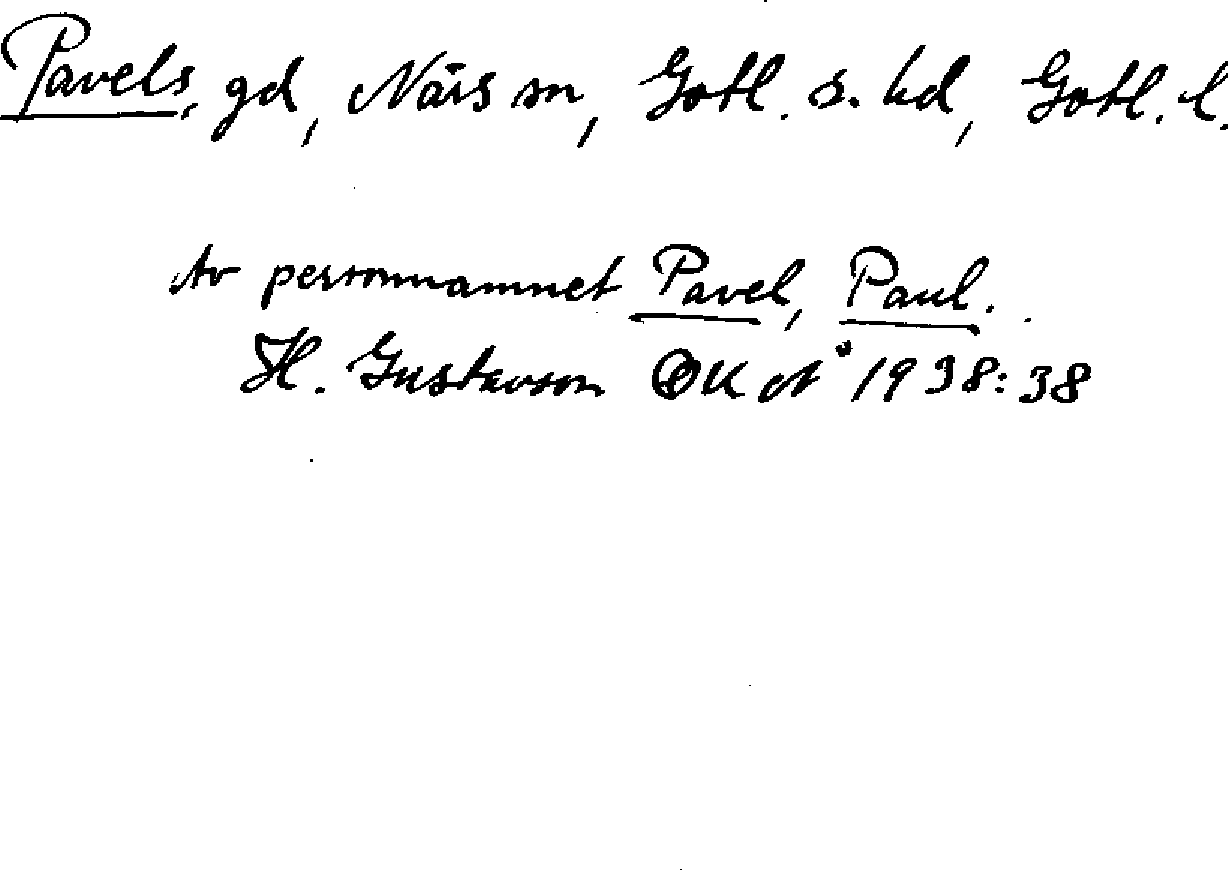 Pavels, gd, Närs sn, Gotl. s. hd, Gotl. l.
Av personnamnet Pavel, Paul.
H. Gustavson OK 1938:38